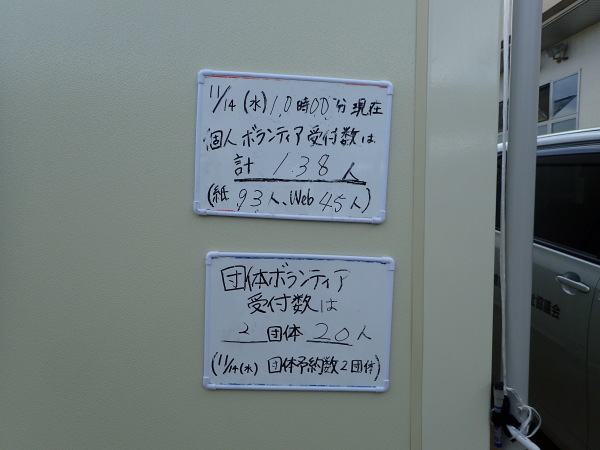 11/14(水)10時00分現在
個人ボランティア受付数は
計 138人
(紙 93人、Web 45人)
団体ボランティア
受付数は
2 団体 20人
(11/14(水) 団体予約数2団体)
協議会